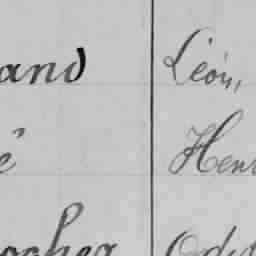 and Léon,
é Hen
ocher Od